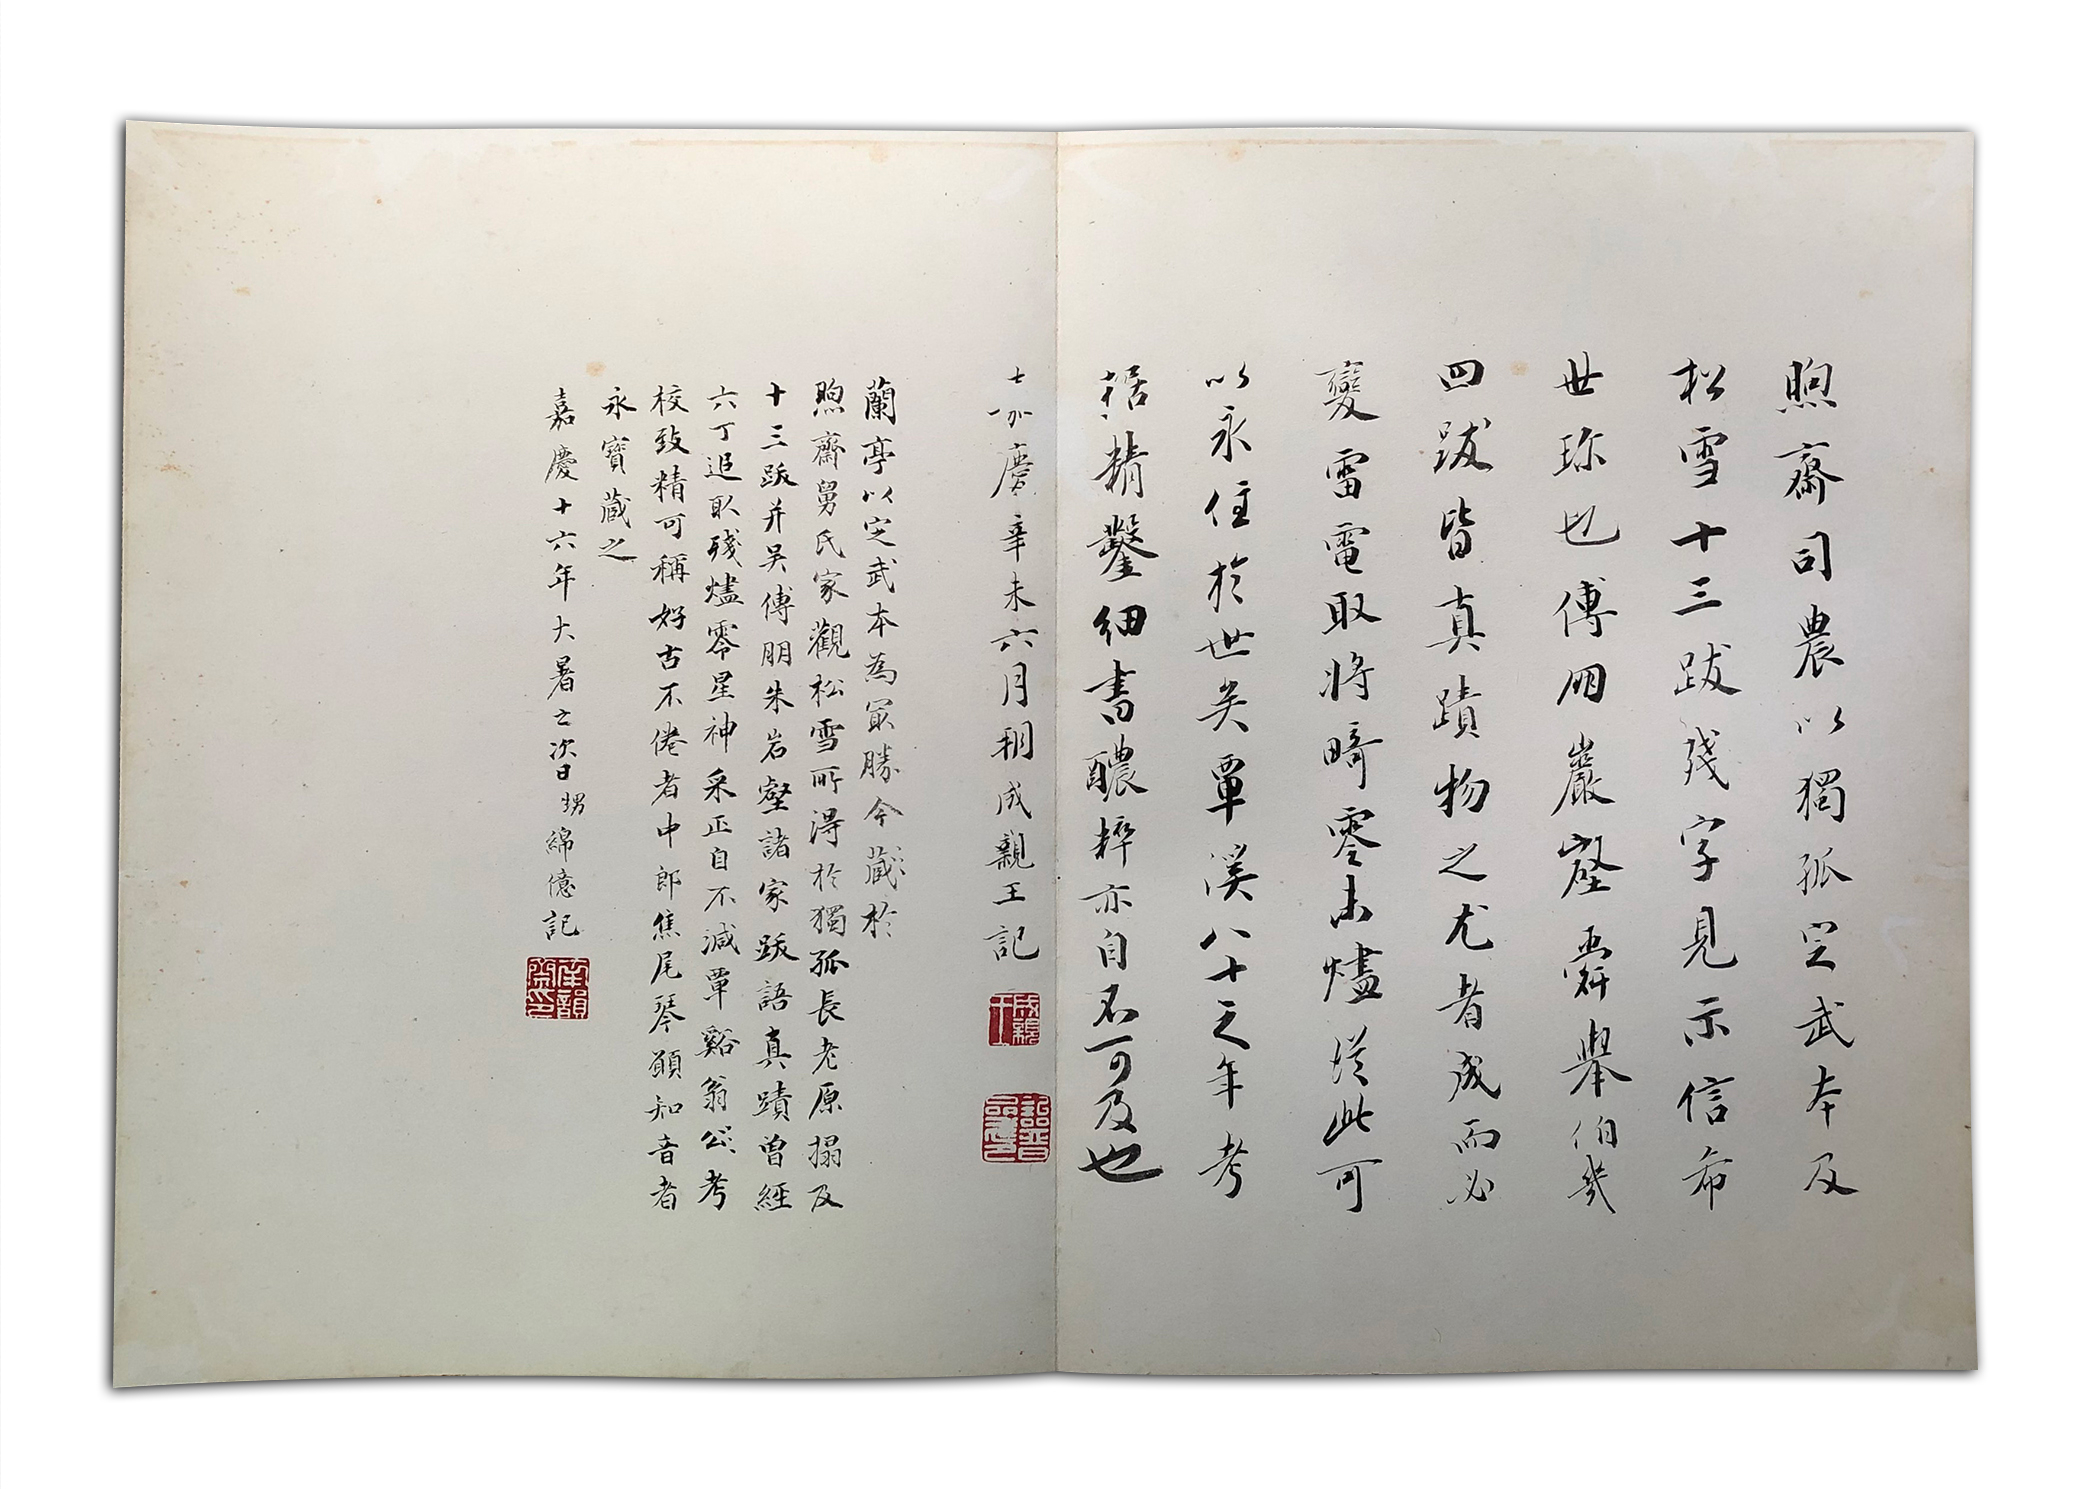 煦齋司農以獨孤定武本及
松雪十三跋殘字見示信希
世珎也傅朋巖壑舜舉伯幾
四跋皆真蹟物之尤者成而必
變雷電取將畸零未燼從此可
以永住於世矣覃溪八十之年考
据精鑿細書醲粹亦自不可及也
嘉慶辛未六月朔成親王記
成親王
詒晉齋印
蘭亭以定武本為冣勝今藏於
煦齋舅氏家觀松雪所得於獨孤長老原搨及
十三跋并吳傅朋朱岩壑諸家跋語真蹟曾經
六丁追取殘燼零星神采正自不減覃谿翁公考
校致精可稱好古不倦者中郎焦尾琴願知音者
永寶藏之
嘉慶十六年大暑之次日甥綿億記
南韻齋印